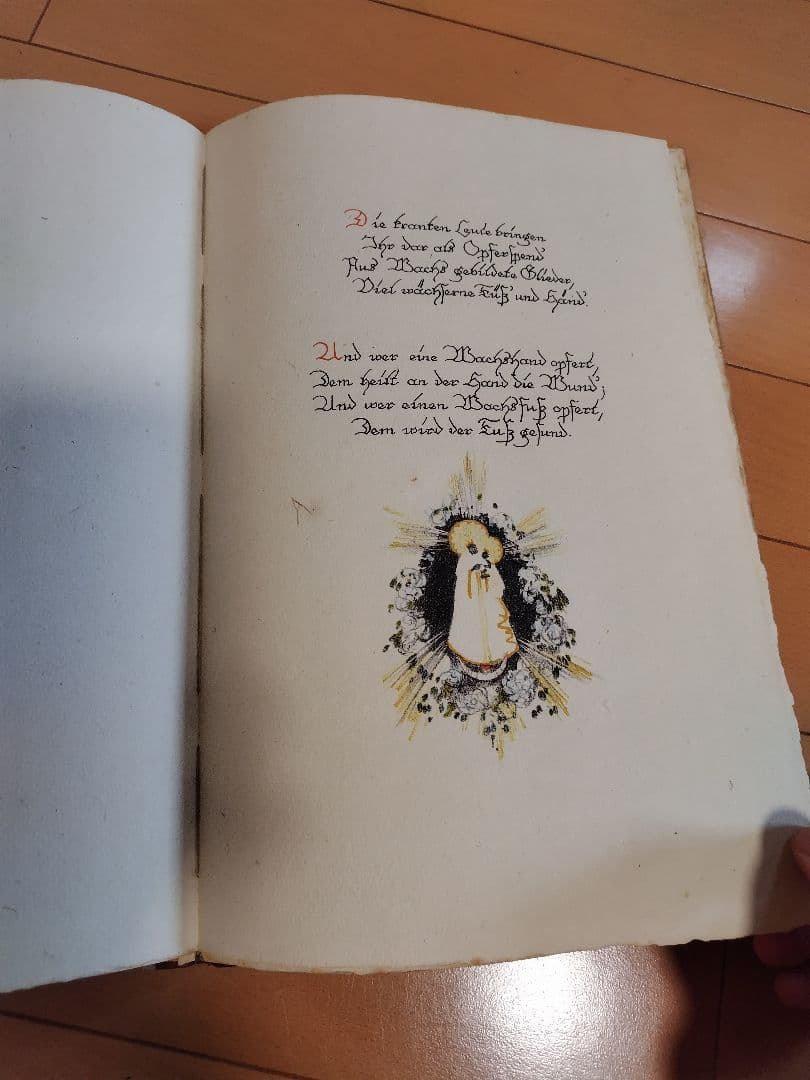 Die kranken Leute bringen
Ihr dar als Opferspend'
Aus Wachs gebildete Glieder,
Viel wächserne Füß' und Händ'.
Und wer eine Wachshand opfert,
Dem heilt an der Hand die Wund';
Und wer einen Wachsfuß opfert,
Dem wird der Fuß gesund.